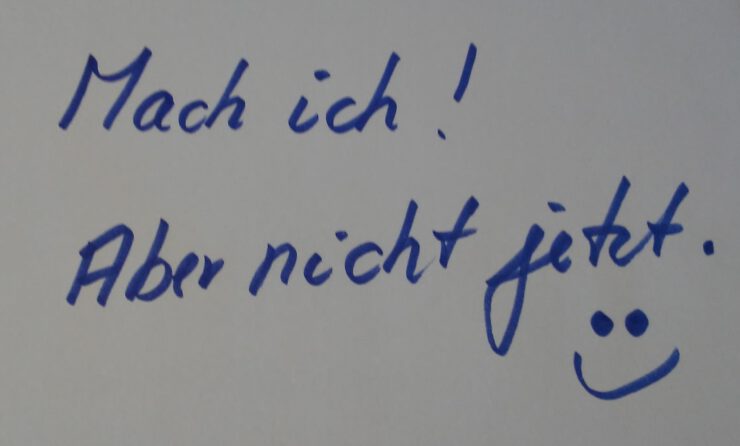 Mach ich!
Aber nicht jetzt.